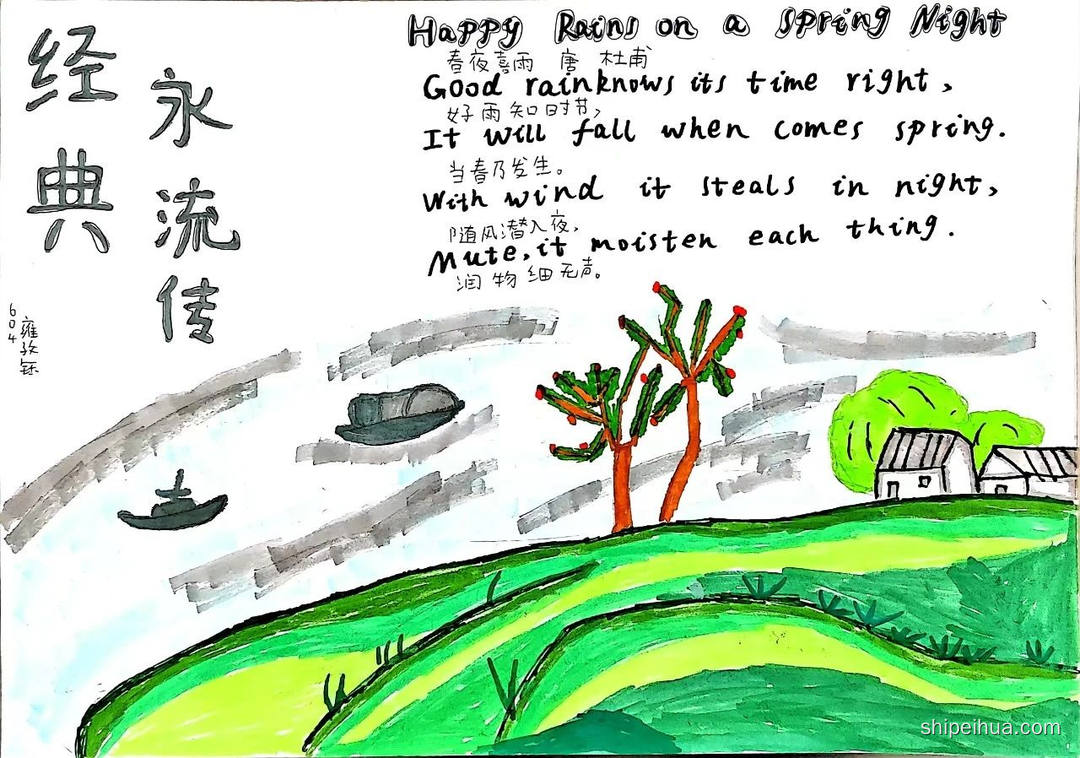 经典
永流传
604
雍孜钰
Happy Rains on a Spring Night
春夜喜雨 唐 杜甫
Good rain knows its time right,
好雨知时节,
It will fall when comes spring.
当春乃发生。
With wind it steals in night,
随风潜入夜,
Mute, it moisten each thing.
润物细无声。
shipeihua.com